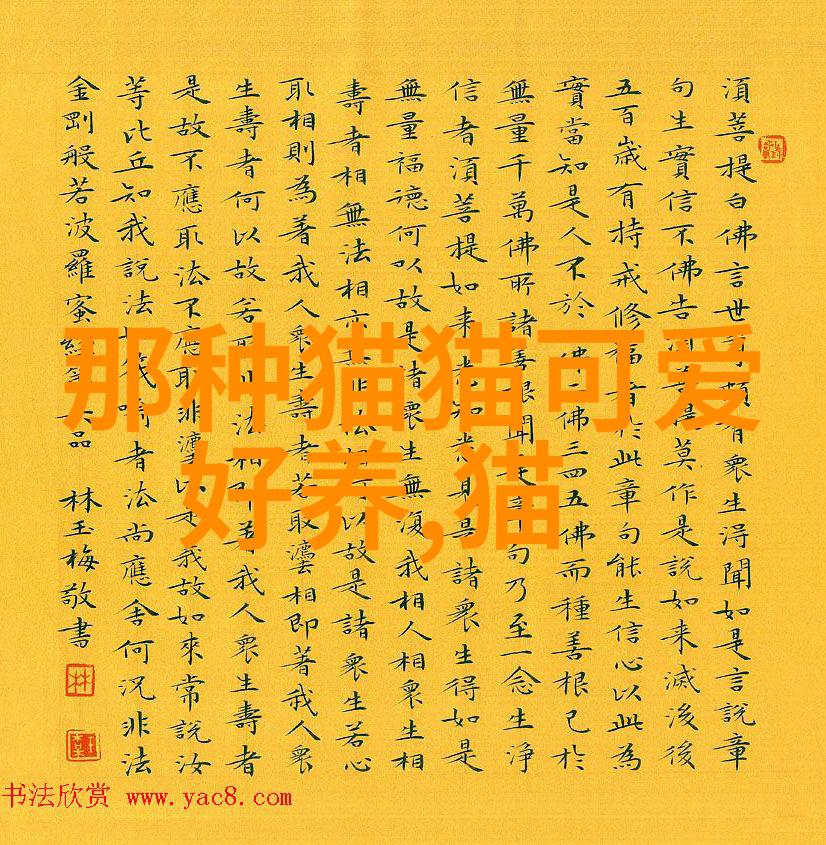 湏菩提白佛言世頗有衆生淂聞如是言說章
句生實信不佛告菩提莫作是說如来滅後後
五百歳有持戒修福者於此章句能生信心以此為
實當知是人不於佛二佛三四五佛而種善根已於
無量千萬佛所諸善根聞是章句乃至一念生淨
信者湏菩提如来悉知悉見是諸衆生得如是
無量福德何以故是諸衆生無復我相人相衆生相
壽者相無法相亦無非法相何以故是諸衆生若心
取相則為著我人衆生壽者若取灋相即著我人衆
生壽者何以故若取非法相即著我人衆生壽者
是故不應取法不應取非灋以是我故如來常說汝
等比丘知我說法如筏喻者法尚應舍何況非法
金剛般若波羅蜜經第六品 林玉梅敬書
林
那种猫猫可爱
好养,猫
书法欣赏 www.yac8.com